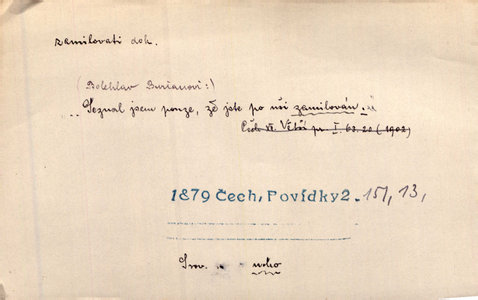 zamilovati dok.
(Bolehlav Buršanovi:)
„Seznal jsem pouze, že jste po uši zamilován."
Čech Vĕtší pr. I. 63.20 (1902)
1879 Čech, Povídky 2. 151, 13,
Srov. ucho